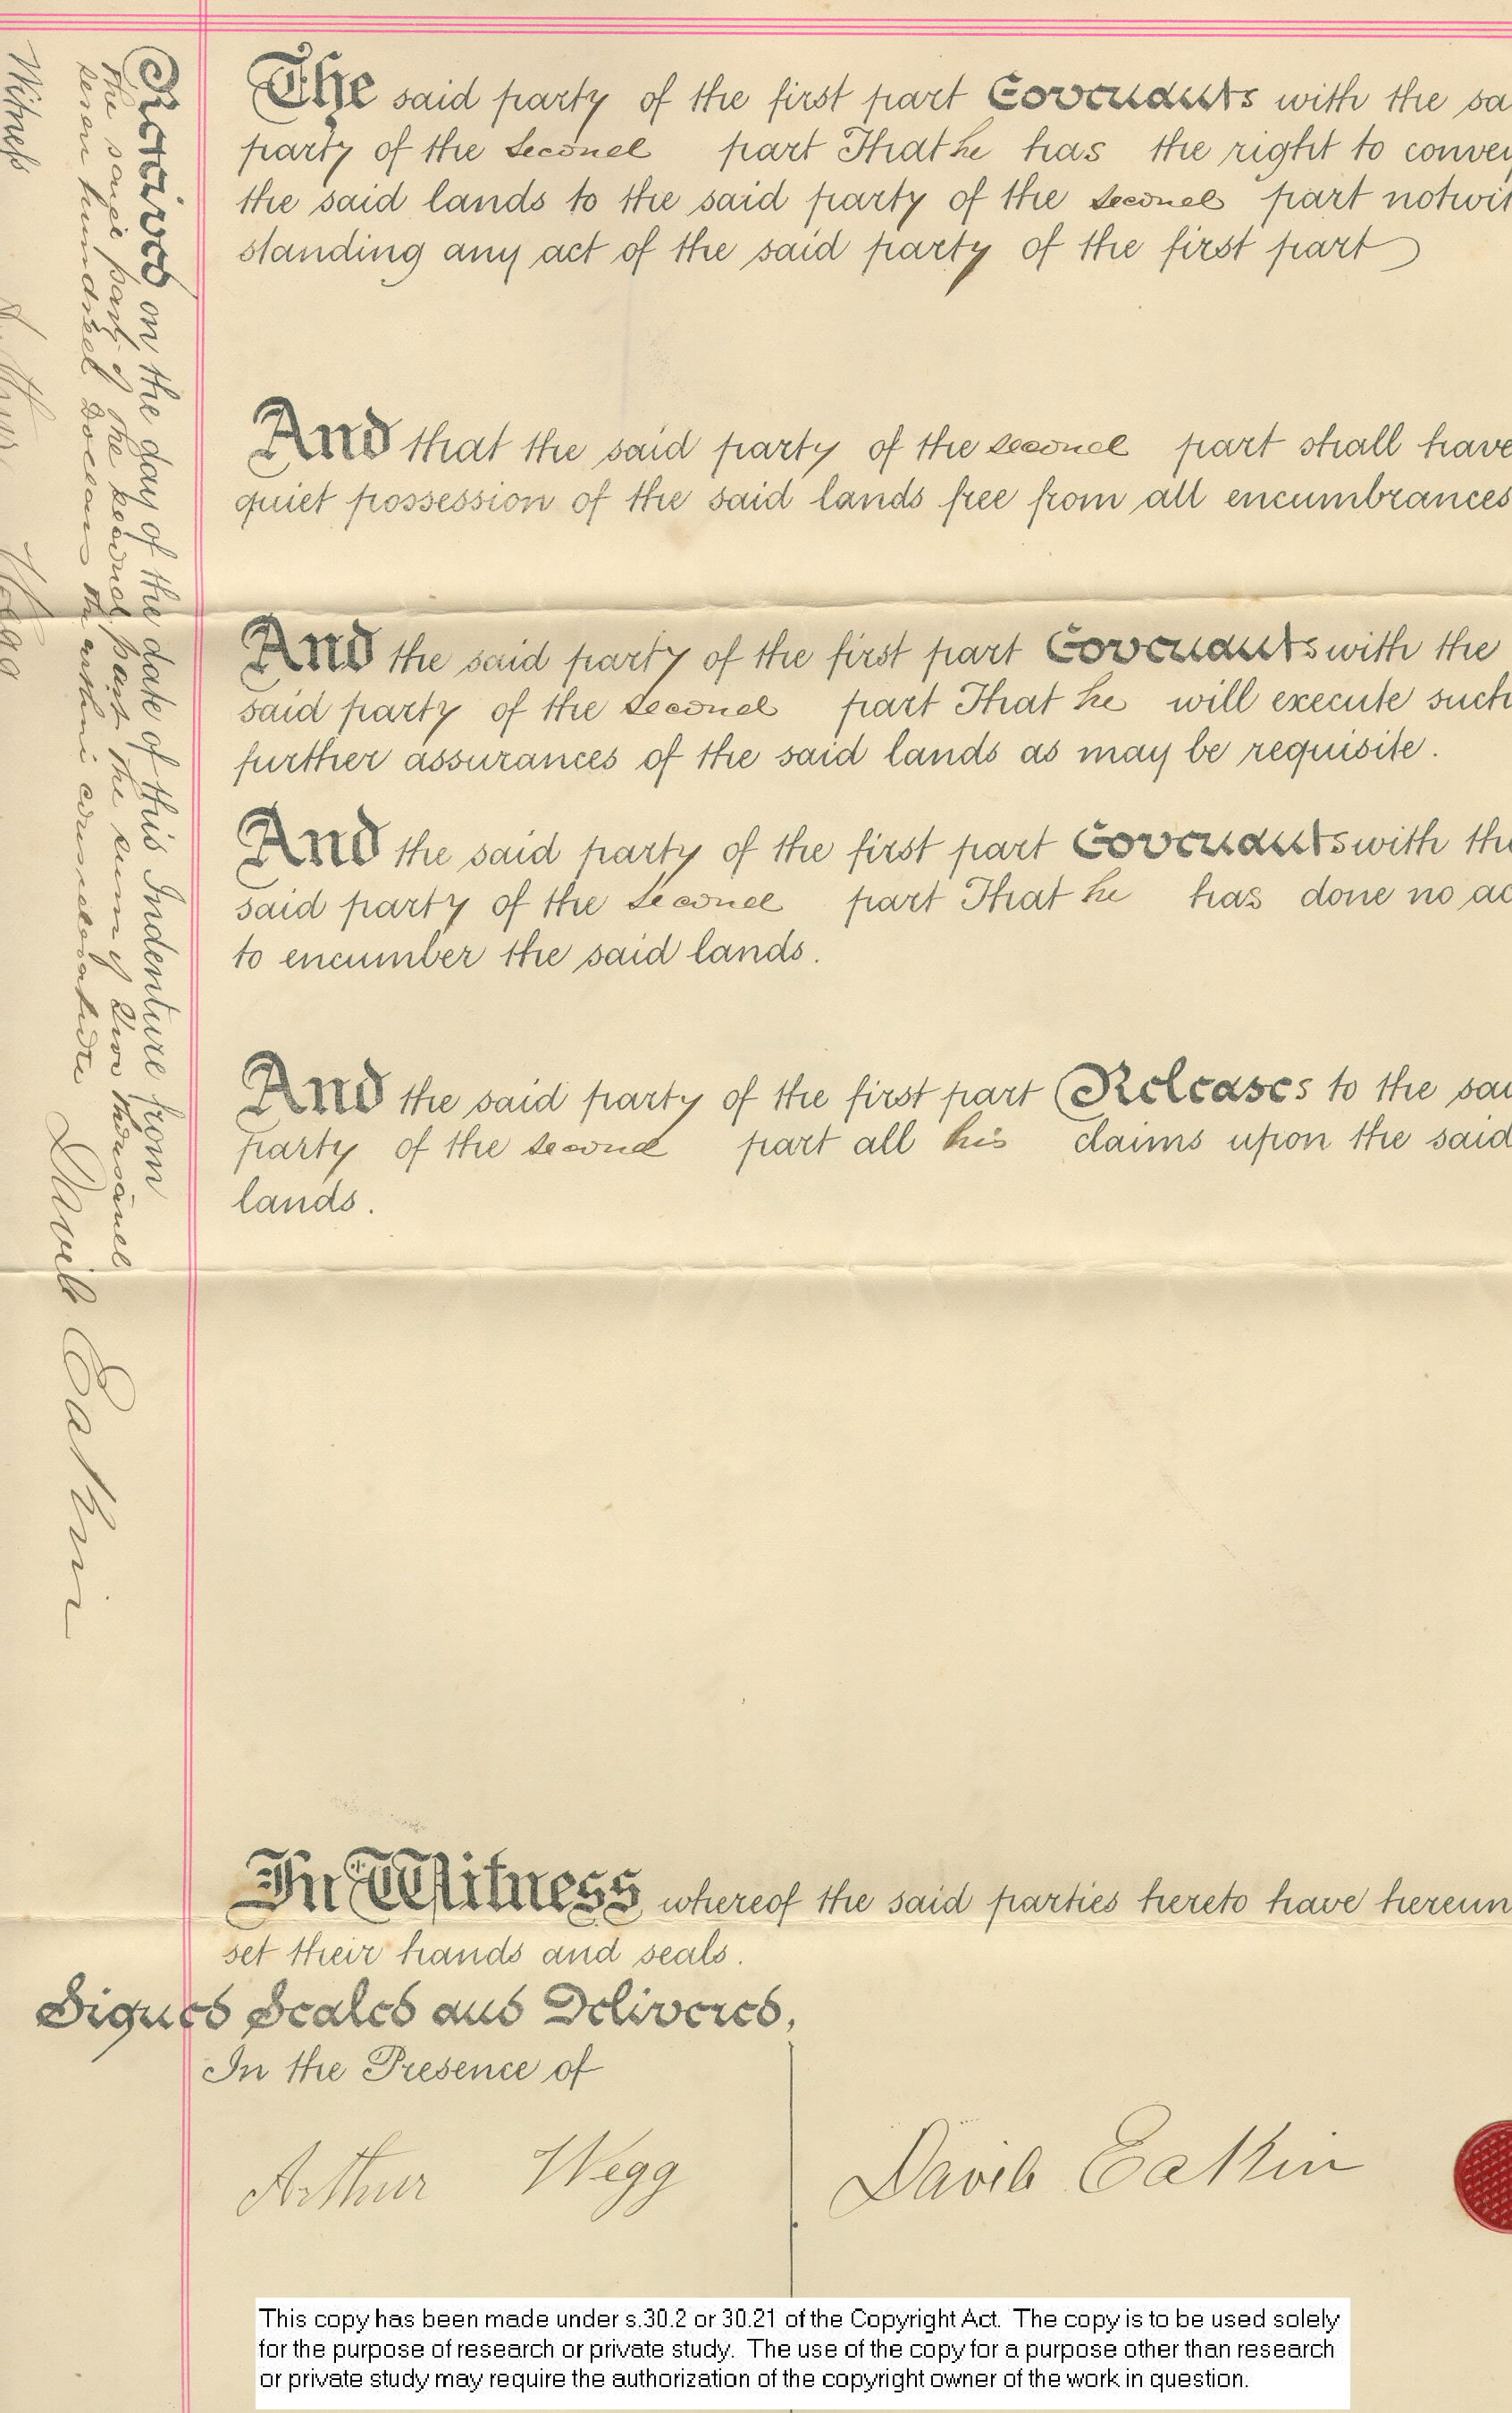 The said party of the first part Covenants with the sa
party of the second part That he has the right to convey
the said lands to the said party of the second part notwit
standing any act of the said party of the first part
And that the said party of the second part shall have
quiet possession of the said lands free from all encumbrances
And the said party of the first part Covenants with the
said party of the second part That he will execute such
further assurances of the said lands as may be requisite.
And the said party of the first part Covenants with the
said party of the second part That he has done no ac
to encumber the said lands.
And the said party of the first part Releases to the sai
party of the second part all his claims upon the said
lands.
In Witness whereof the said parties hereto have hereun
set their hands and seals.
Signed Sealed and Delivered,
In the Presence of
Arthur Wegg
David Eakin
Received on the day of the date of this Indenture from
the said party of the second part the sum of Two thousand
seven hundred Dollars the within consideration
David Eakin
Witness
Arthur Wegg
This copy has been made under s.30.2 or 30.21 of the Copyright Act. The copy is to be used solely
for the purpose of research or private study. The use of the copy for a purpose other than research
or private study may require the authorization of the copyright owner of the work in question.